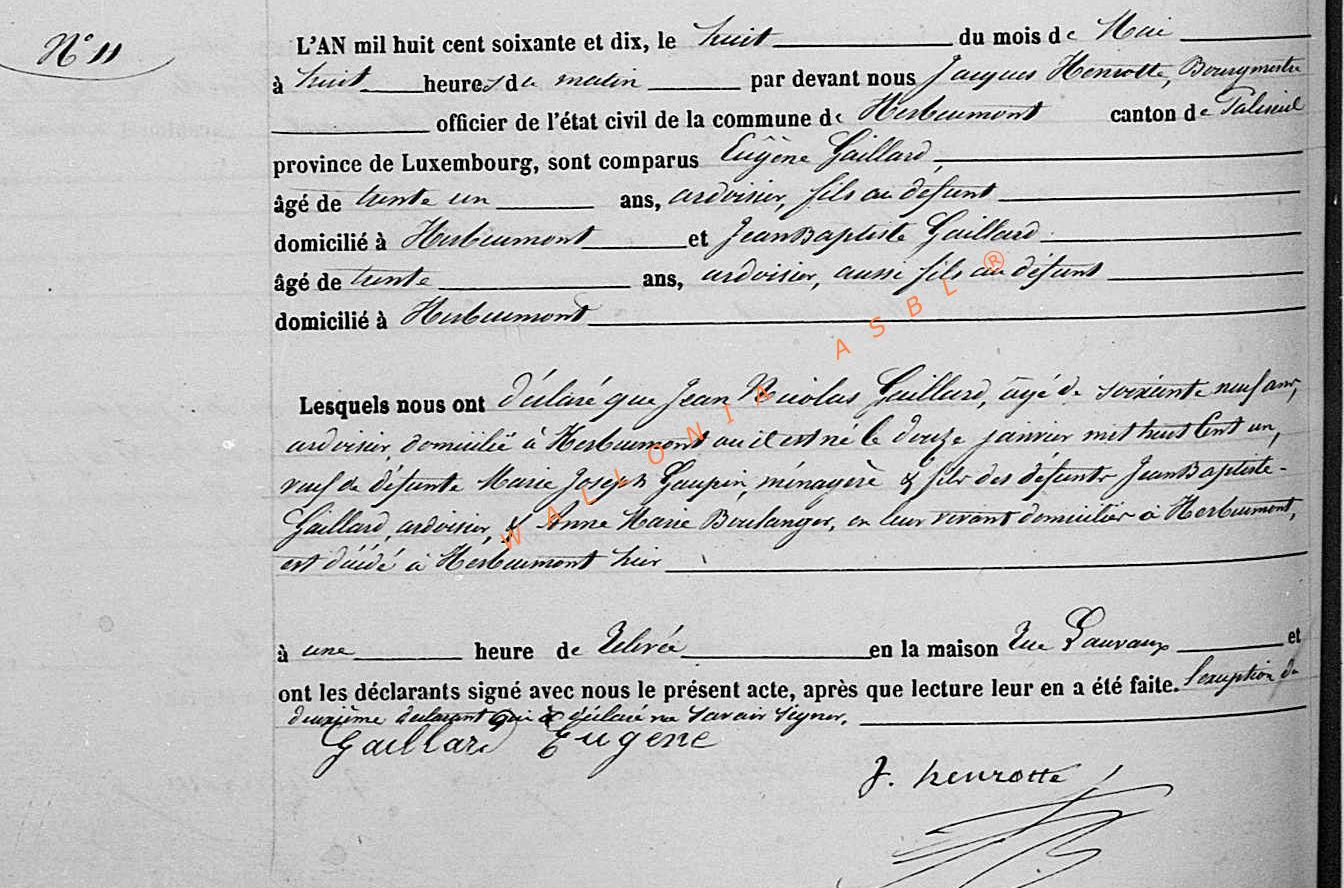 N° 11
L'AN mil huit cent soixante et dix, le huit du mois de Mai
à huit heures du matin par devant nous Jacques Henrotte, Bourgmestre
officier de l'état civil de la commune de Herbeumont canton de Paliseul
province de Luxembourg, sont comparus Eugène Gaillard,
âgé de trente un ans, ardoisier, fils au défunt
domicilié à Herbeumont et Jean Baptiste Gaillard
âgé de trente ans, ardoisier, aussi fils au défunt
domicilié à Herbeumont
Lesquels nous ont déclaré que Jean Nicolas Gaillard, âgé de soixante neuf ans,
ardoisier, domicilié à Herbeumont où il est né le douze janvier mil huit cent un,
veuf de défunte Marie Joseph Gaupin, ménagère & fils des défunts Jean Baptiste
Gaillard, ardoisier, & Anne Marie Boulanger, en leur vivant domiciliés à Herbeumont,
est décédé à Herbeumont hier
à une heure de relevée en la maison rue Lauvaux et
ont les déclarants signé avec nous le présent acte, après que lecture leur en a été faite. l'exception du
deuxième déclarant qui a déclaré ne savoir signer.
Gaillard Eugene
J. henrotte
WALLONIA ASBL ®